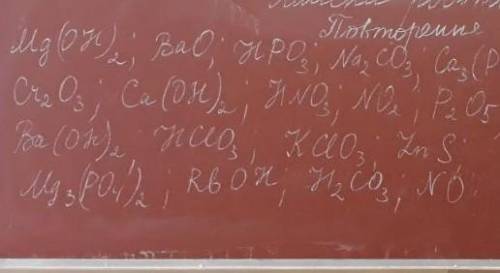 Повторение
Mg(OH)₂; BaO; HPO₃; Na₂CO₃; Ca₃(P
Cr₂O₃; Ca(OH)₂; HNO₃; NO₂; P₂O₅
Ba(OH)₂; HClO₃; KClO₃; ZnS;
Mg₃(PO₄)₂; RbOH; H₂CO₃; NO